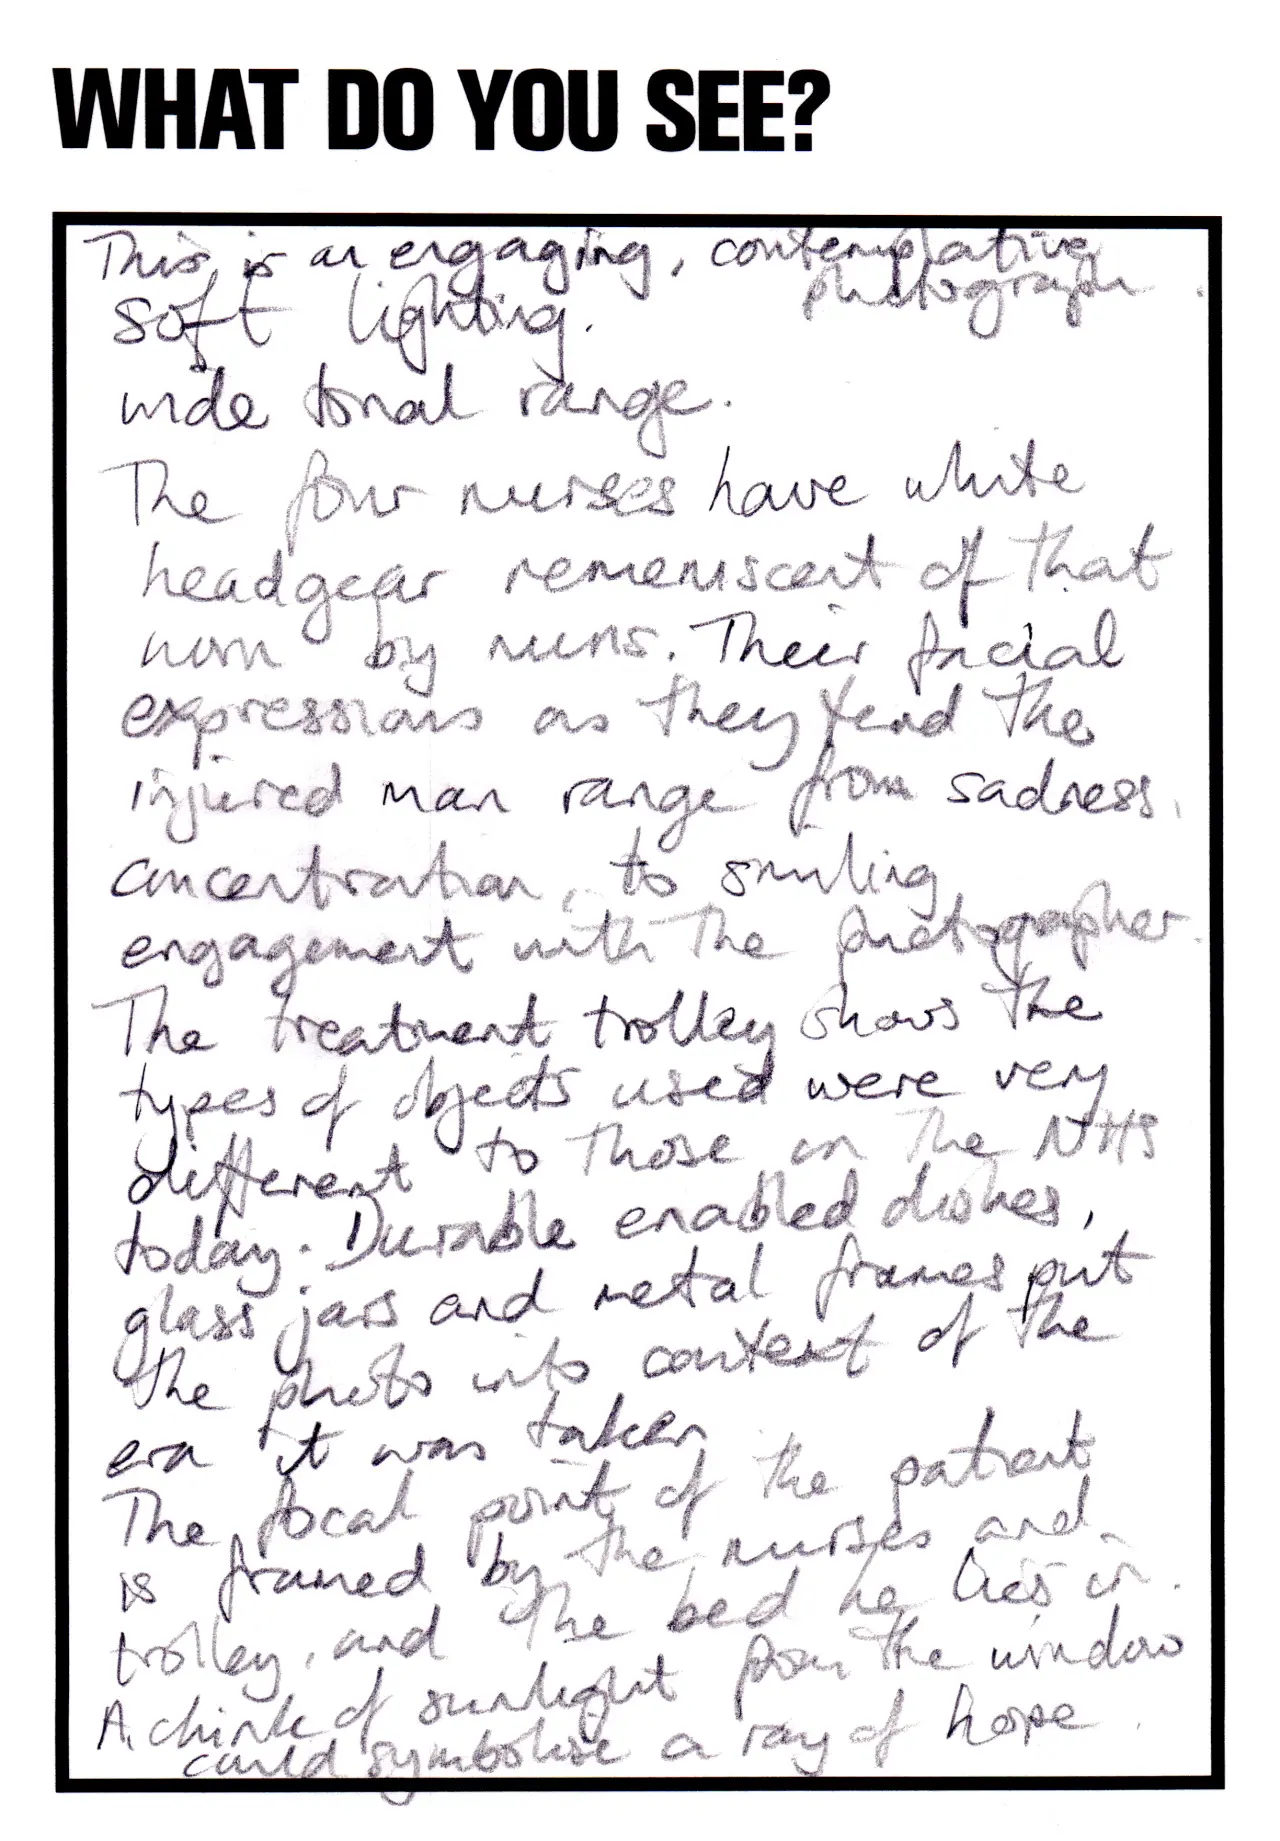 WHAT DO YOU SEE?
This is an engaging, contemplative
photograph.
soft lighting.
wide tonal range.
The four nurses have white
headgear remeniscent of that
worn by nuns. Their facial
expressions as they tend the
injured man range from sadness,
concentration, to smiling
engagement with the photographer.
The treatment trolley shows the
types of objects used were very
different to those in the NHS
today. Durable enabled dishes,
glass jars and metal frames put
the photo into context of the
era it was taken
The focal point of the patient
is framed by the nurses and
trolley, and the bed he lies in.
A chink of sunlight from the window
could symbolise a ray of hope.